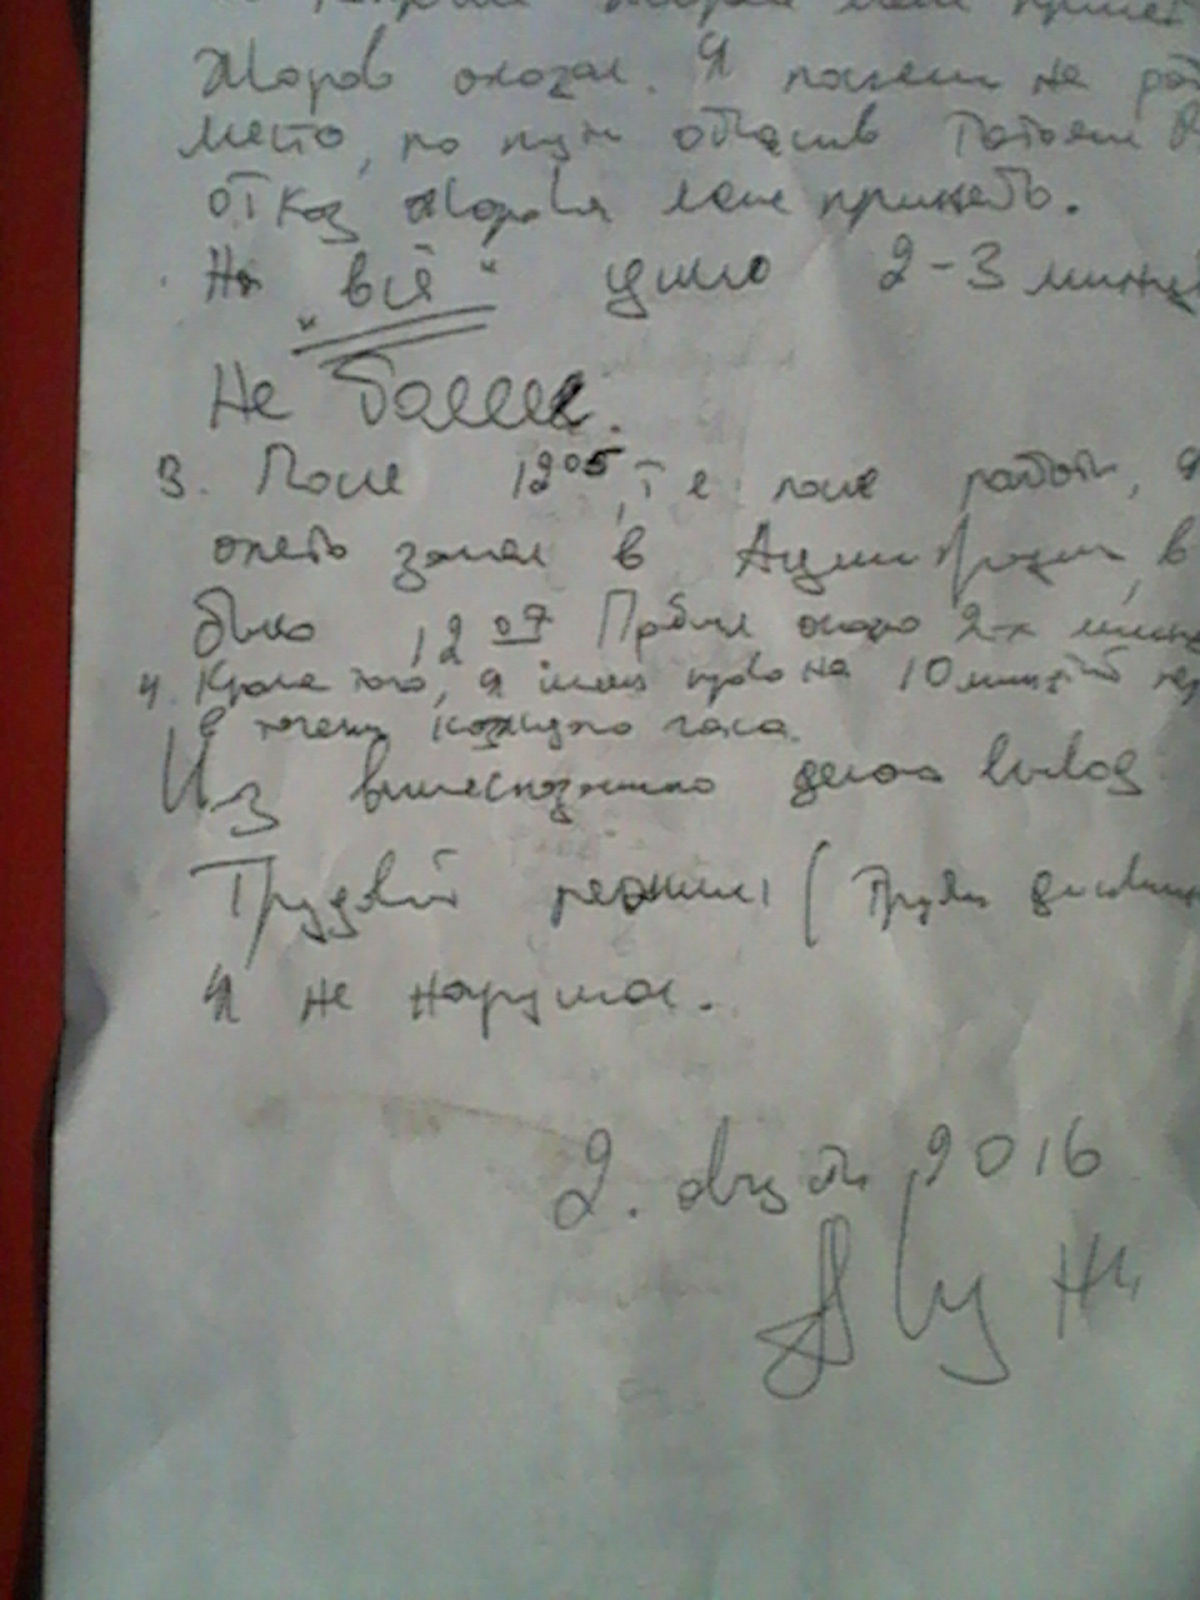 Жоров отказал. Я пошел на
место, по пути объяснив Татьяне
отказ Жорова меня принять.
На "всё" ушло 2-3
Не более.
3. После 12 05, т е после работы, я
опять зашел в Администрацию, в
было 12 07 Пробыл около 2-х
4. Кроме того, я имею право на 10 минутный
в течении каждого часа.
Из вышесказанного делаю вывод
Трудовой режим (
Я не нарушал.
2. августа 2016